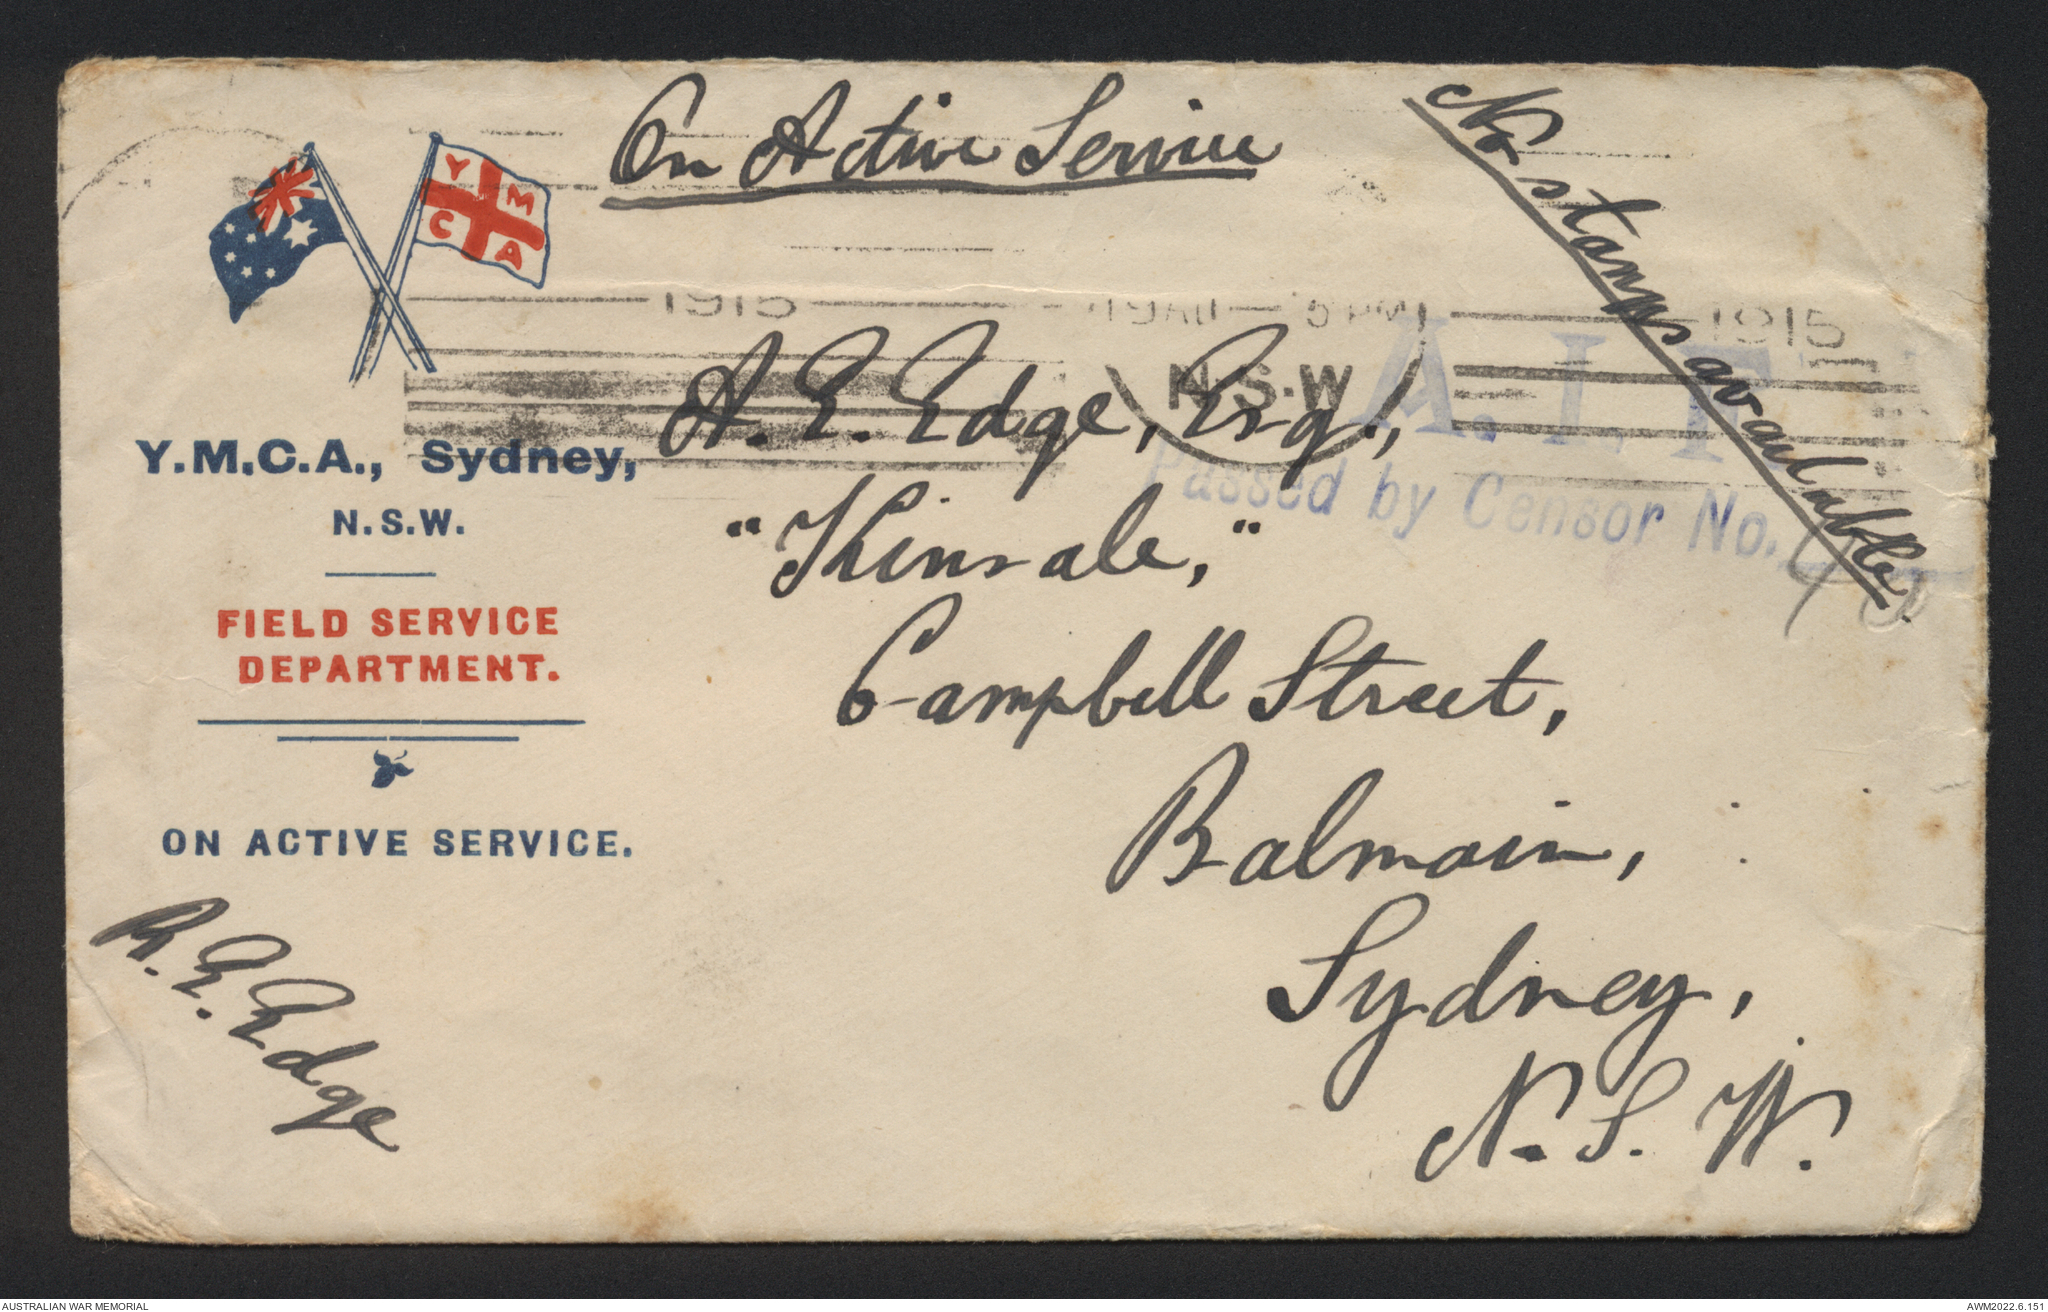 On Active Service
No stamps available.
Y M
C A
1915
5 PM
1915
N.S.W
A.I.F.
Passed by Censor No.
A. E. Edge, Esq.,
"Kinsale,"
Campbell Street,
Balmain,
Sydney,
N. S. W.
Y.M.C.A., Sydney,
N.S.W.
FIELD SERVICE
DEPARTMENT.
ON ACTIVE SERVICE.
R. E. Edge
AUSTRALIAN WAR MEMORIAL
AWM2022.6.151